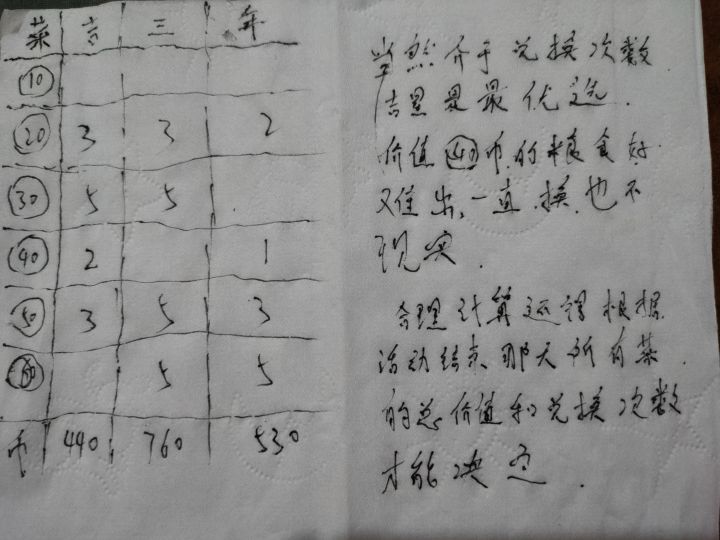 菜 吉 三 年
10
20 3 3 2
30 5 5
40 2 1
50 3 5 3
60 5 5
币 440 760 530
当然介于兑换次数
吉里是最优选.
价值40币的粮食好
又难出,一直换也不
现实.
合理计算还得根据
活动结束那天所有菜
的总价值和兑换次数
才能决定.